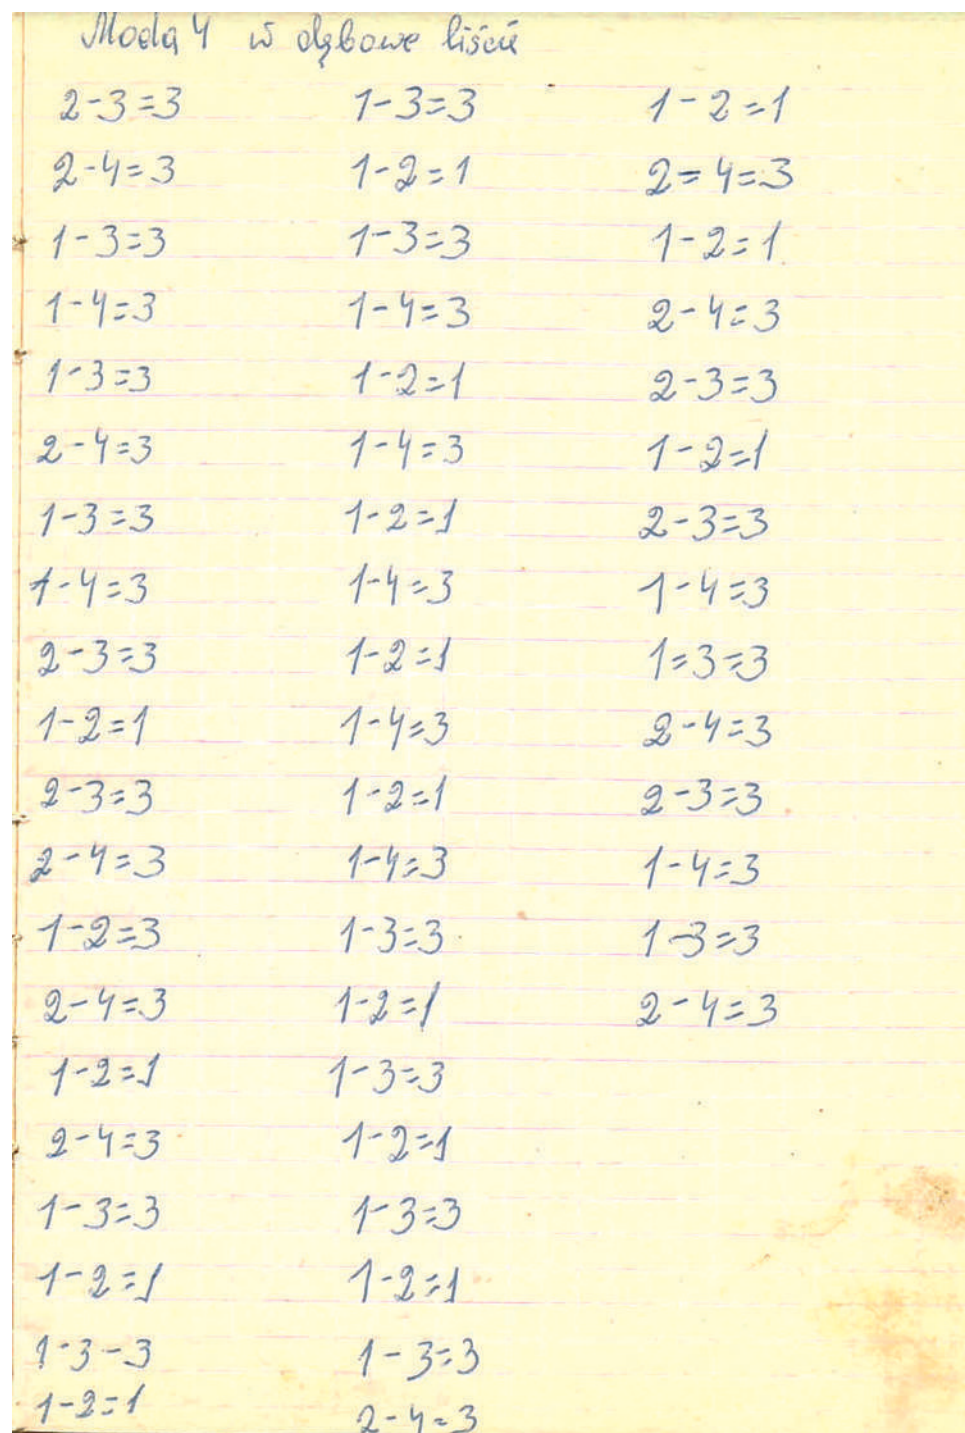 Moda 4 w dębowe liście
2-3=3
2-4=3
1-3=3
1-4=3
1-3=3
2-4=3
1-3=3
1-4=3
2-3=3
1-2=1
2-3=3
2-4=3
1-2=3
2-4=3
1-2=1
2-4=3
1-3=3
1-2=1
1-3-3
1-2=1
1-3=3
1-2=1
1-3=3
1-4=3
1-2=1
1-4=3
1-2=1
1-4=3
1-2=1
1-4=3
1-2=1
1-4=3
1-3=3
1-2=1
1-3=3
1-2=1
1-3=3
1-2=1
1-3=3
2-4=3
1-2=1
2=4=3
1-2=1
2-4=3
2-3=3
1-2=1
2-3=3
1-4=3
1=3=3
2-4=3
2-3=3
1-4=3
1-3=3
2-4=3